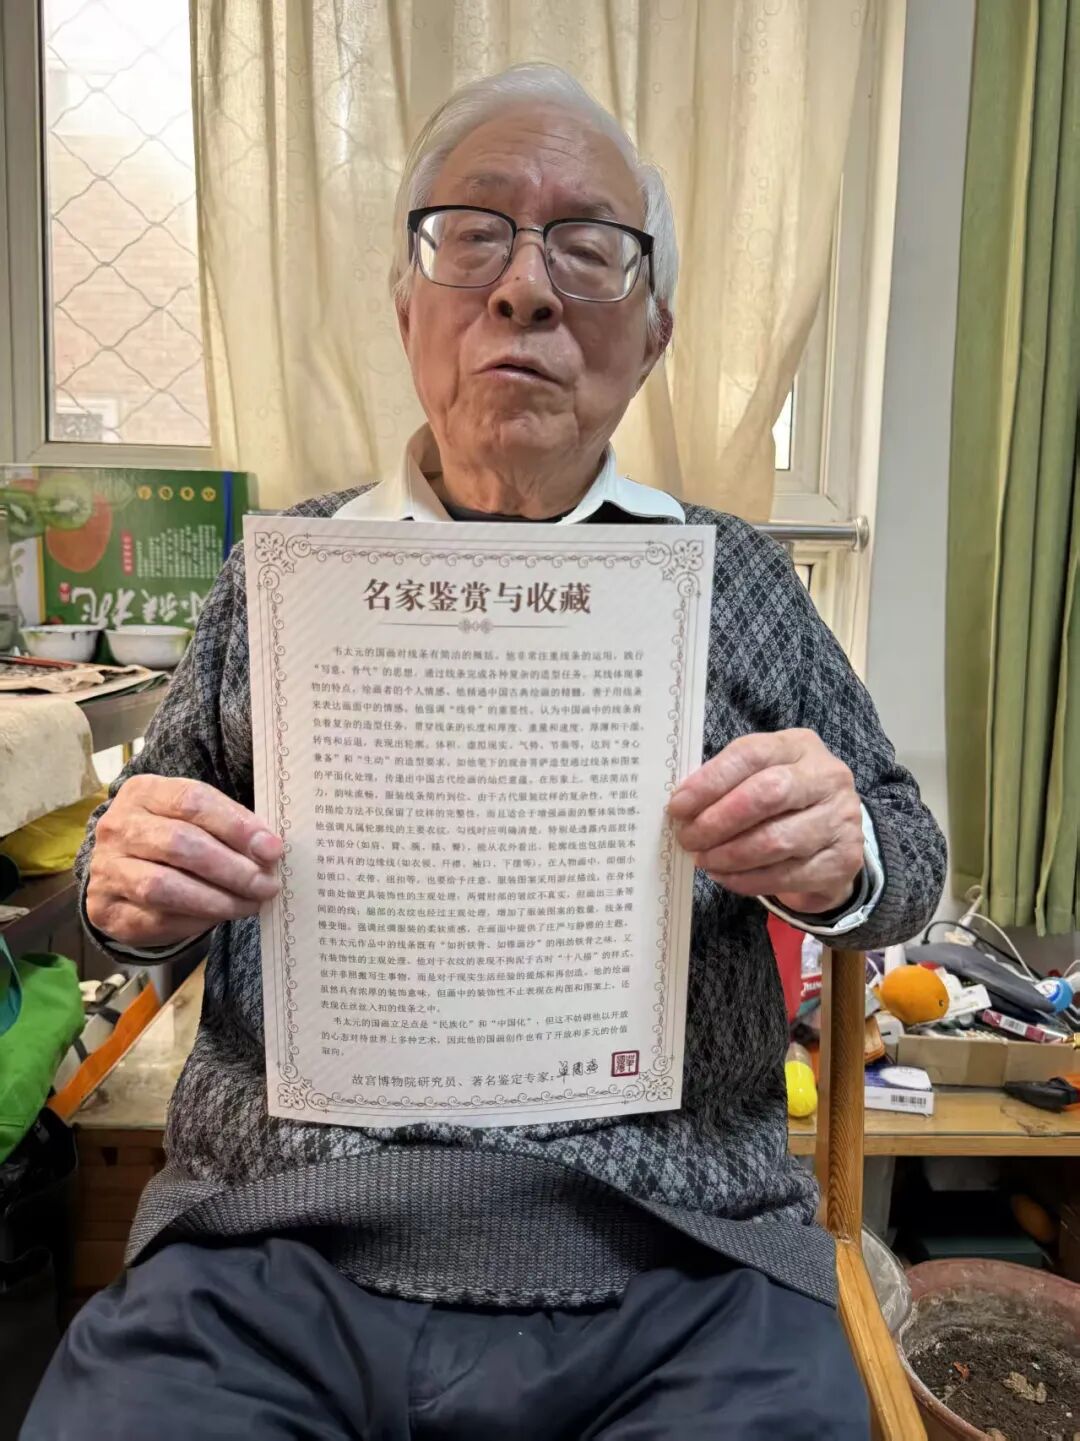 名家鉴赏与收藏
韦太元的国画对线条有简洁的概括。他非常注重线条的运用，践行
“写意、骨气”的思想，通过线条完成各种复杂的造型任务。其线体现事
物的特点，绘画者的个人情感。他精通中国古典绘画的精髓，善于用线条
来表达画面中的情感。他强调“线骨”的重要性，认为中国画中的线条肩
负着复杂的造型任务，贯穿线条的长度和厚度、重量和速度，厚薄和干湿，
转弯和后退，表现出轮廓、体积、虚拟现实、气势、节奏等，达到“身心
兼备”和“生动”的造型要求。如他笔下的观音菩萨造型通过线条和图案
的平面化处理，传递出中国古代绘画的灿烂意蕴。在形象上，笔法简洁有
力，韵味流畅，服装线条简约到位。由于古代服装纹样的复杂性，平面化
的描绘方法不仅保留了纹样的完整性，而且适合于增强画面的整体装饰感。
他强调凡属轮廓线的主要衣纹，勾线时应明确清楚，特别是透露内部肢体
关节部分(如肩、臂、腕、膝、臀)，能从衣外看出，轮廓线也包括服装本
身所具有的边缘线(如衣领、纤襟、袖口、下摆等)。在人物画中，即细小
如领口、衣带、纽扣等，也要给予注意。服装图案采用游丝描线，在身体
弯曲处做更具装饰性的主观处理；两臂肘部的皱纹不真实，但画出三条等
间距的线；腿部的衣纹也经过主观处理，增加了服装图案的数量，线条慢
慢变细，强调丝绸服装的柔软质感，在画面中提供了庄严与静雅的主题。
在韦太元作品中的线条既有“如折铁骨、如锥画沙”的刚劲铁骨之味，又
有装饰性的主观处理。他对于衣纹的表现不拘泥于古时“十八描”的样式，
也并非照搬写生事物，而是对于现实生活经验的提炼和再创造。他的绘画
虽然具有浓厚的装饰意味，但画中的装饰性不止表现在构图和图案上，还
表现在丝丝入扣的线条之中。
韦太元的国画立足点是“民族化”和“中国化”，但这不妨碍他以开放
的心态对待世界上多种艺术，因此他的国画创作也有了开放和多元的价值
取向。
故宫博物院研究员、著名鉴定专家：单国强